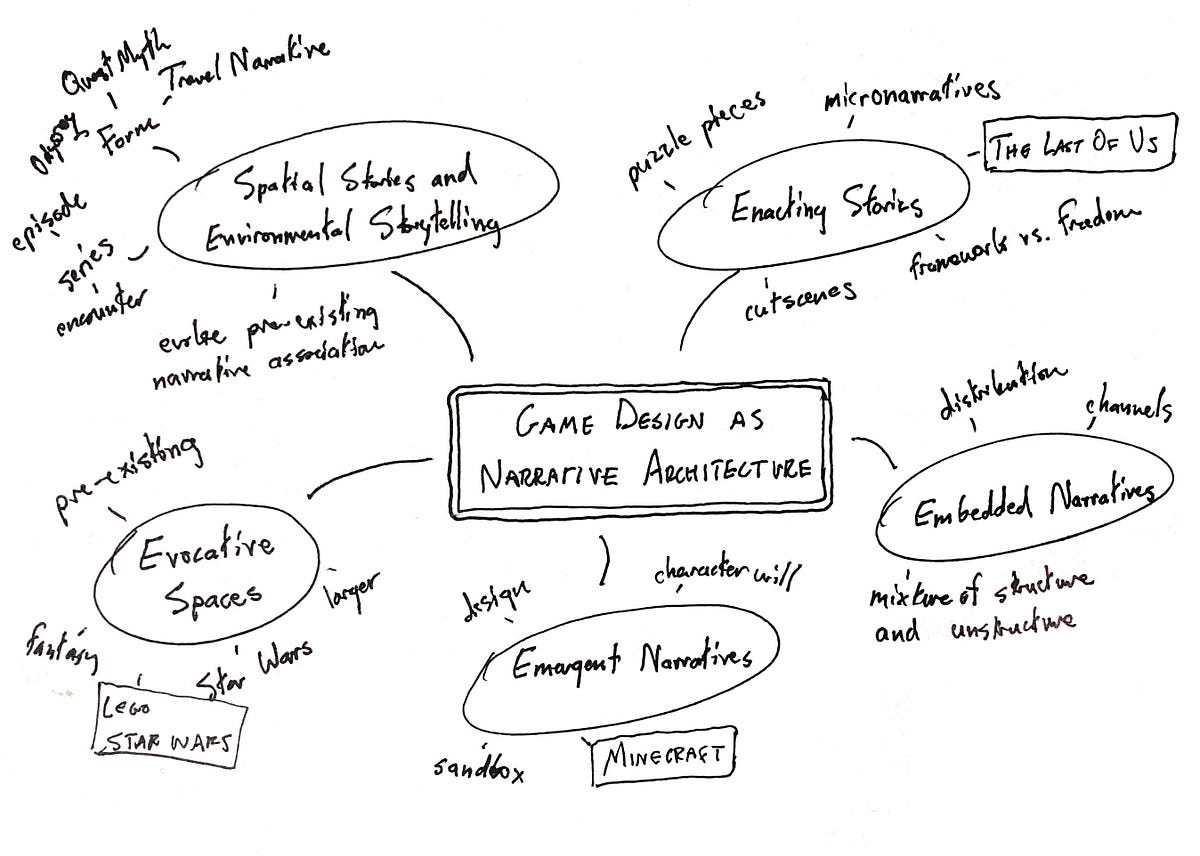 Quest Myth
Travel Narrative
Odyssey
Form
episode
series
encounter
Spatial Stories and
Environmental Storytelling
evoke pre-existing
narrative association
puzzle pieces
micronarratives
THE LAST OF US
Enacting Stories
framework vs. freedom
cutscenes
GAME DESIGN AS
NARRATIVE ARCHITECTURE
distribution
channels
Embedded Narratives
mixture of structure
and unstructure
pre-existing
Evocative
Spaces
larger
fantasy
Star Wars
LEGO
STAR WARS
design
character will
Emargent Narratives
sandbox
MINECRAFT